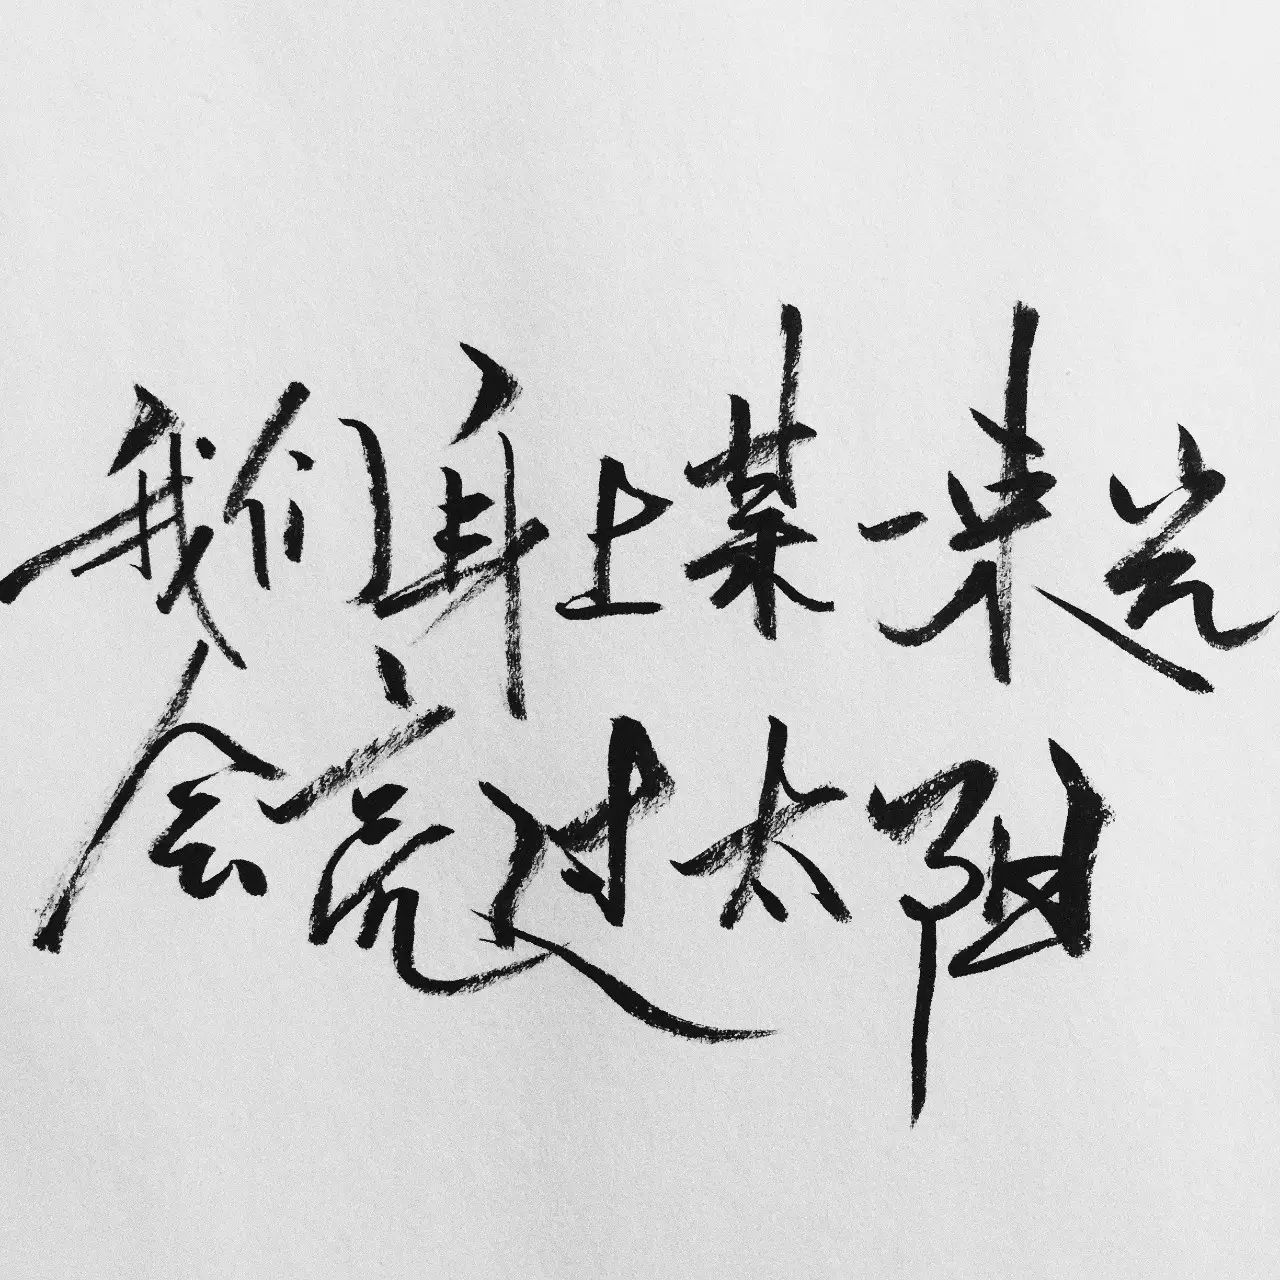 我们身上某一束光
会亮过太阳